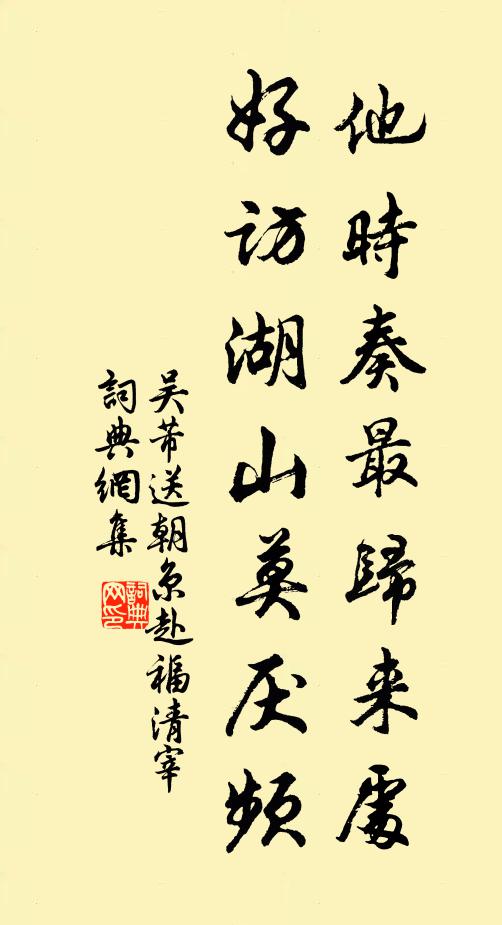 他時奏最歸来處
好訪湖山莫厌頻
吴芾送朝京赴福清宰
詞典網集
詞典网印